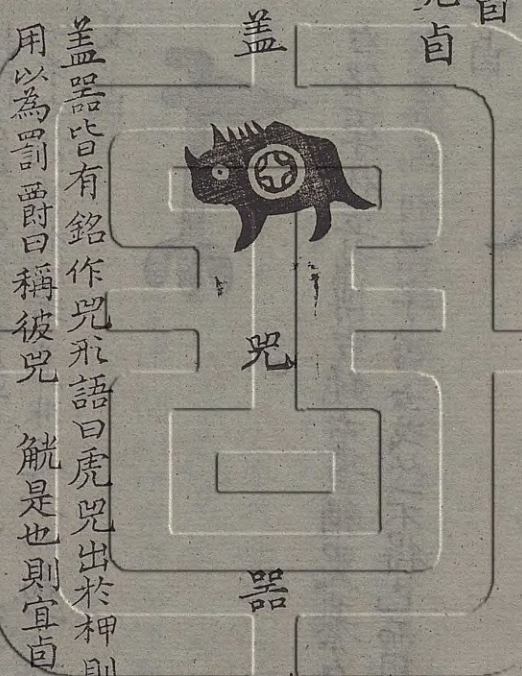 卣
兕卣
盖
兕
噐
盖噐皆有銘作兕形語曰虎兕出於柙則
用以為罰爵曰稱彼兕 觥是也則宜卣